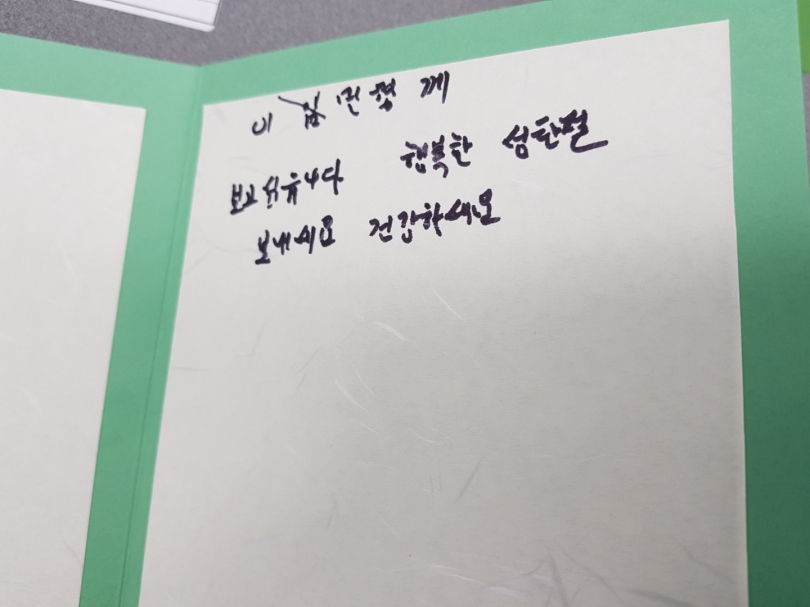 이 민형 께
보고싶유니다 행복한 성탄절
보내세요 건강하세요